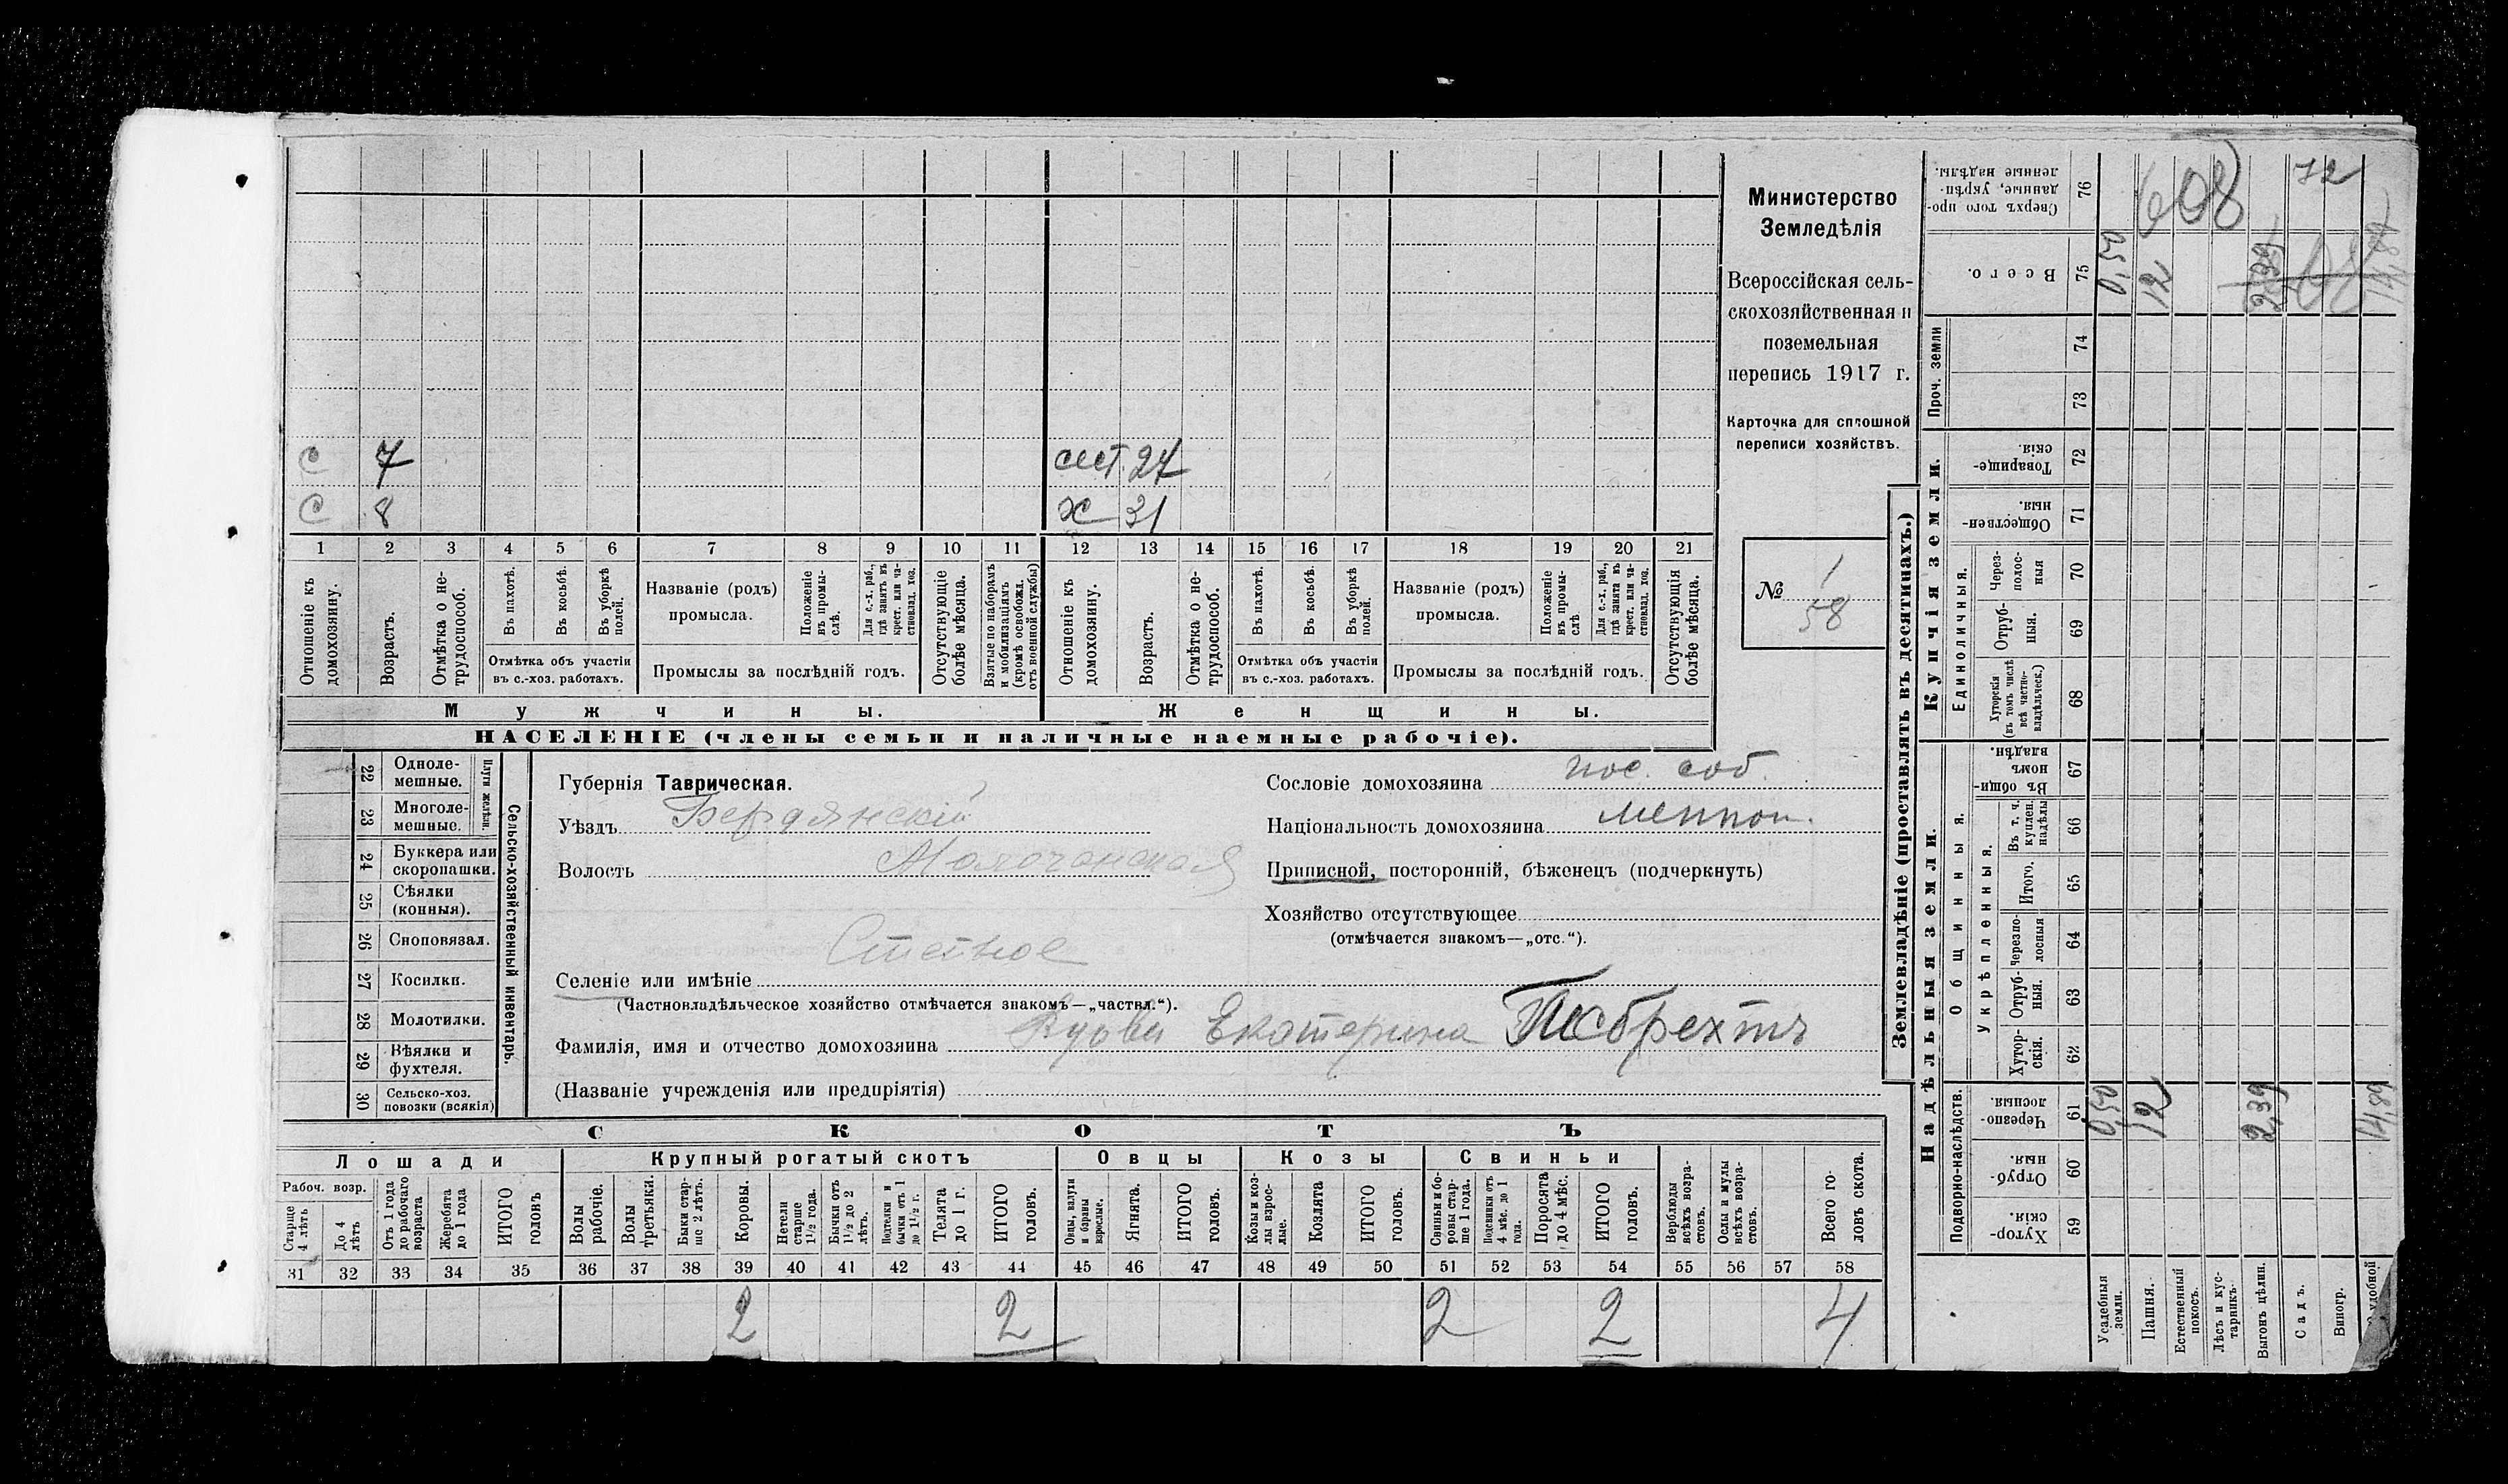 с 7 сест. 27
с 8 х 31
1 2 3 4 5 6 7 8 9 10 11 12 13 14 15 16 17 18 19 20 21
Отношеніе къ домохозяину.
Возрастъ.
Отмѣтка о нетрудоспособ.
Въ пахотѣ.
Въ косьбѣ.
Въ уборкѣ полей.
Отмѣтка объ участіи
въ с.-хоз. работахъ.
Названіе (родъ)
промысла.
Положеніе въ промыслѣ.
Для с.-х. раб., гдѣ занятъ въ крест. или частновлад. хоз.
Промыслы за послѣдній годъ.
Отсутствующіе болѣе мѣсяца.
Взятые по наборамъ и мобилизаціямъ (кромѣ освобожд. отъ военной службы)
Отношеніе къ домохозяину.
Возрастъ.
Отмѣтка о нетрудоспособ.
Въ пахотѣ.
Въ косьбѣ.
Въ уборкѣ полей.
Отмѣтка объ участіи
въ с.-хоз. работахъ.
Названіе (родъ)
промысла.
Положеніе въ промыслѣ
Для с.-х. раб., гдѣ занята въ крест. или частновлад. хоз.
Промыслы за послѣдній годъ.
Отсутствующія болѣе мѣсяца.
Мужчины. Женщины.
НАСЕЛЕНІЕ (члены семьи и наличные наемные рабочіе).
Министерство
Земледѣлія
Всероссійская сель-
скохозяйственная и
поземельная
перепись 1917 г.
Карточка для сплошной
переписи хозяйствъ.
№ 1
58
22 Однолемешные.
23 Многолемешные.
Плуги желѣзн.
24 Буккера или скоропашки.
25 Сѣялки (конныя).
26 Сноповязал.
27 Косилки.
28 Молотилки.
29 Вѣялки и фухтеля.
30 Сельско-хоз. повозки (всякія)
Сельско-хозяйственный инвентарь.
Губернія Таврическая.
Уѣздъ Бердянскій
Волость Молочанская
Селеніе или имѣніе
(Частновладѣльческое хозяйство отмѣчается знакомъ—„частвл.“).
Фамилія, имя и отчество домохозяина Екатерина
(Названіе учрежденія или предпріятія)
Сословіе домохозяина пос. соб.
Національность домохозяина меннон.
Приписной, посторонній, бѣженецъ (подчеркнуть)
Хозяйство отсутствующее
(отмѣчается знакомъ—„отс.“).
СКОТЪ
Лошади Крупный рогатый скотъ Овцы Козы Свиньи
Рабоч. возр.
Старше 4 лѣтъ
До 4 лѣтъ
Отъ 1 года до рабочаго возраста
Жеребята до 1 года
ИТОГО головъ
Волы рабочіе.
Волы третьяки.
Быки старше 2 лѣтъ.
Коровы.
Нетели старше 1½ года.
Бычки отъ 1½ до 2 лѣтъ.
Подтелки и бычки отъ 1 до 1½ г.
Телята до 1 г.
ИТОГО головъ.
Овцы, валухи и бараны взрослые.
Ягнята.
ИТОГО головъ.
Козы и козлы взрослые.
Козлята
ИТОГО головъ.
Свиньи и боровы старше 1 года.
Подсвинки отъ 4 мѣс. до 1 года.
Поросята до 4 мѣс.
ИТОГО головъ.
Верблюды всѣхъ возрастовъ.
Ослы и мулы всѣхъ возрастовъ.
Всего головъ скота.
31 32 33 34 35 36 37 38 39 40 41 42 43 44 45 46 47 48 49 50 51 52 53 54 55 56 57 58
2 2 2 2 4
Землевладѣніе (проставлять въ десятинахъ.)
Купчія земли.
Надѣльныя земли.
Сверхъ того проданные, укрѣпленные надѣлы. 76 608 72
Всего. 75 0,50 12 2,39 14,89
Проч. земли 74
73
Товарищескія 72
Общественныя. 71
Единоличныя.
Черезполосныя 70
Отрубныя. 69
Хуторскія (въ томъ числѣ всѣ частновладѣльческ.) 68
Общинныя.
Въ общинномъ владѣн. 67
Укрѣпленныя.
Въ т. ч. куплен. надѣлы 66
Итого. 65
Черезполосныя 64
Отрубныя. 63
Хуторскія. 62
Подворно-наслѣдств.
Черезполосныя. 61 0,50 12 2,39 14,89
Отрубныя. 60
Хуторскія. 59
Усадебныя земли.
Пашня.
Естественный покосъ.
Лѣсъ и кустарникъ.
Выгонъ цѣлин.
Садъ.
Виногр.
удобной